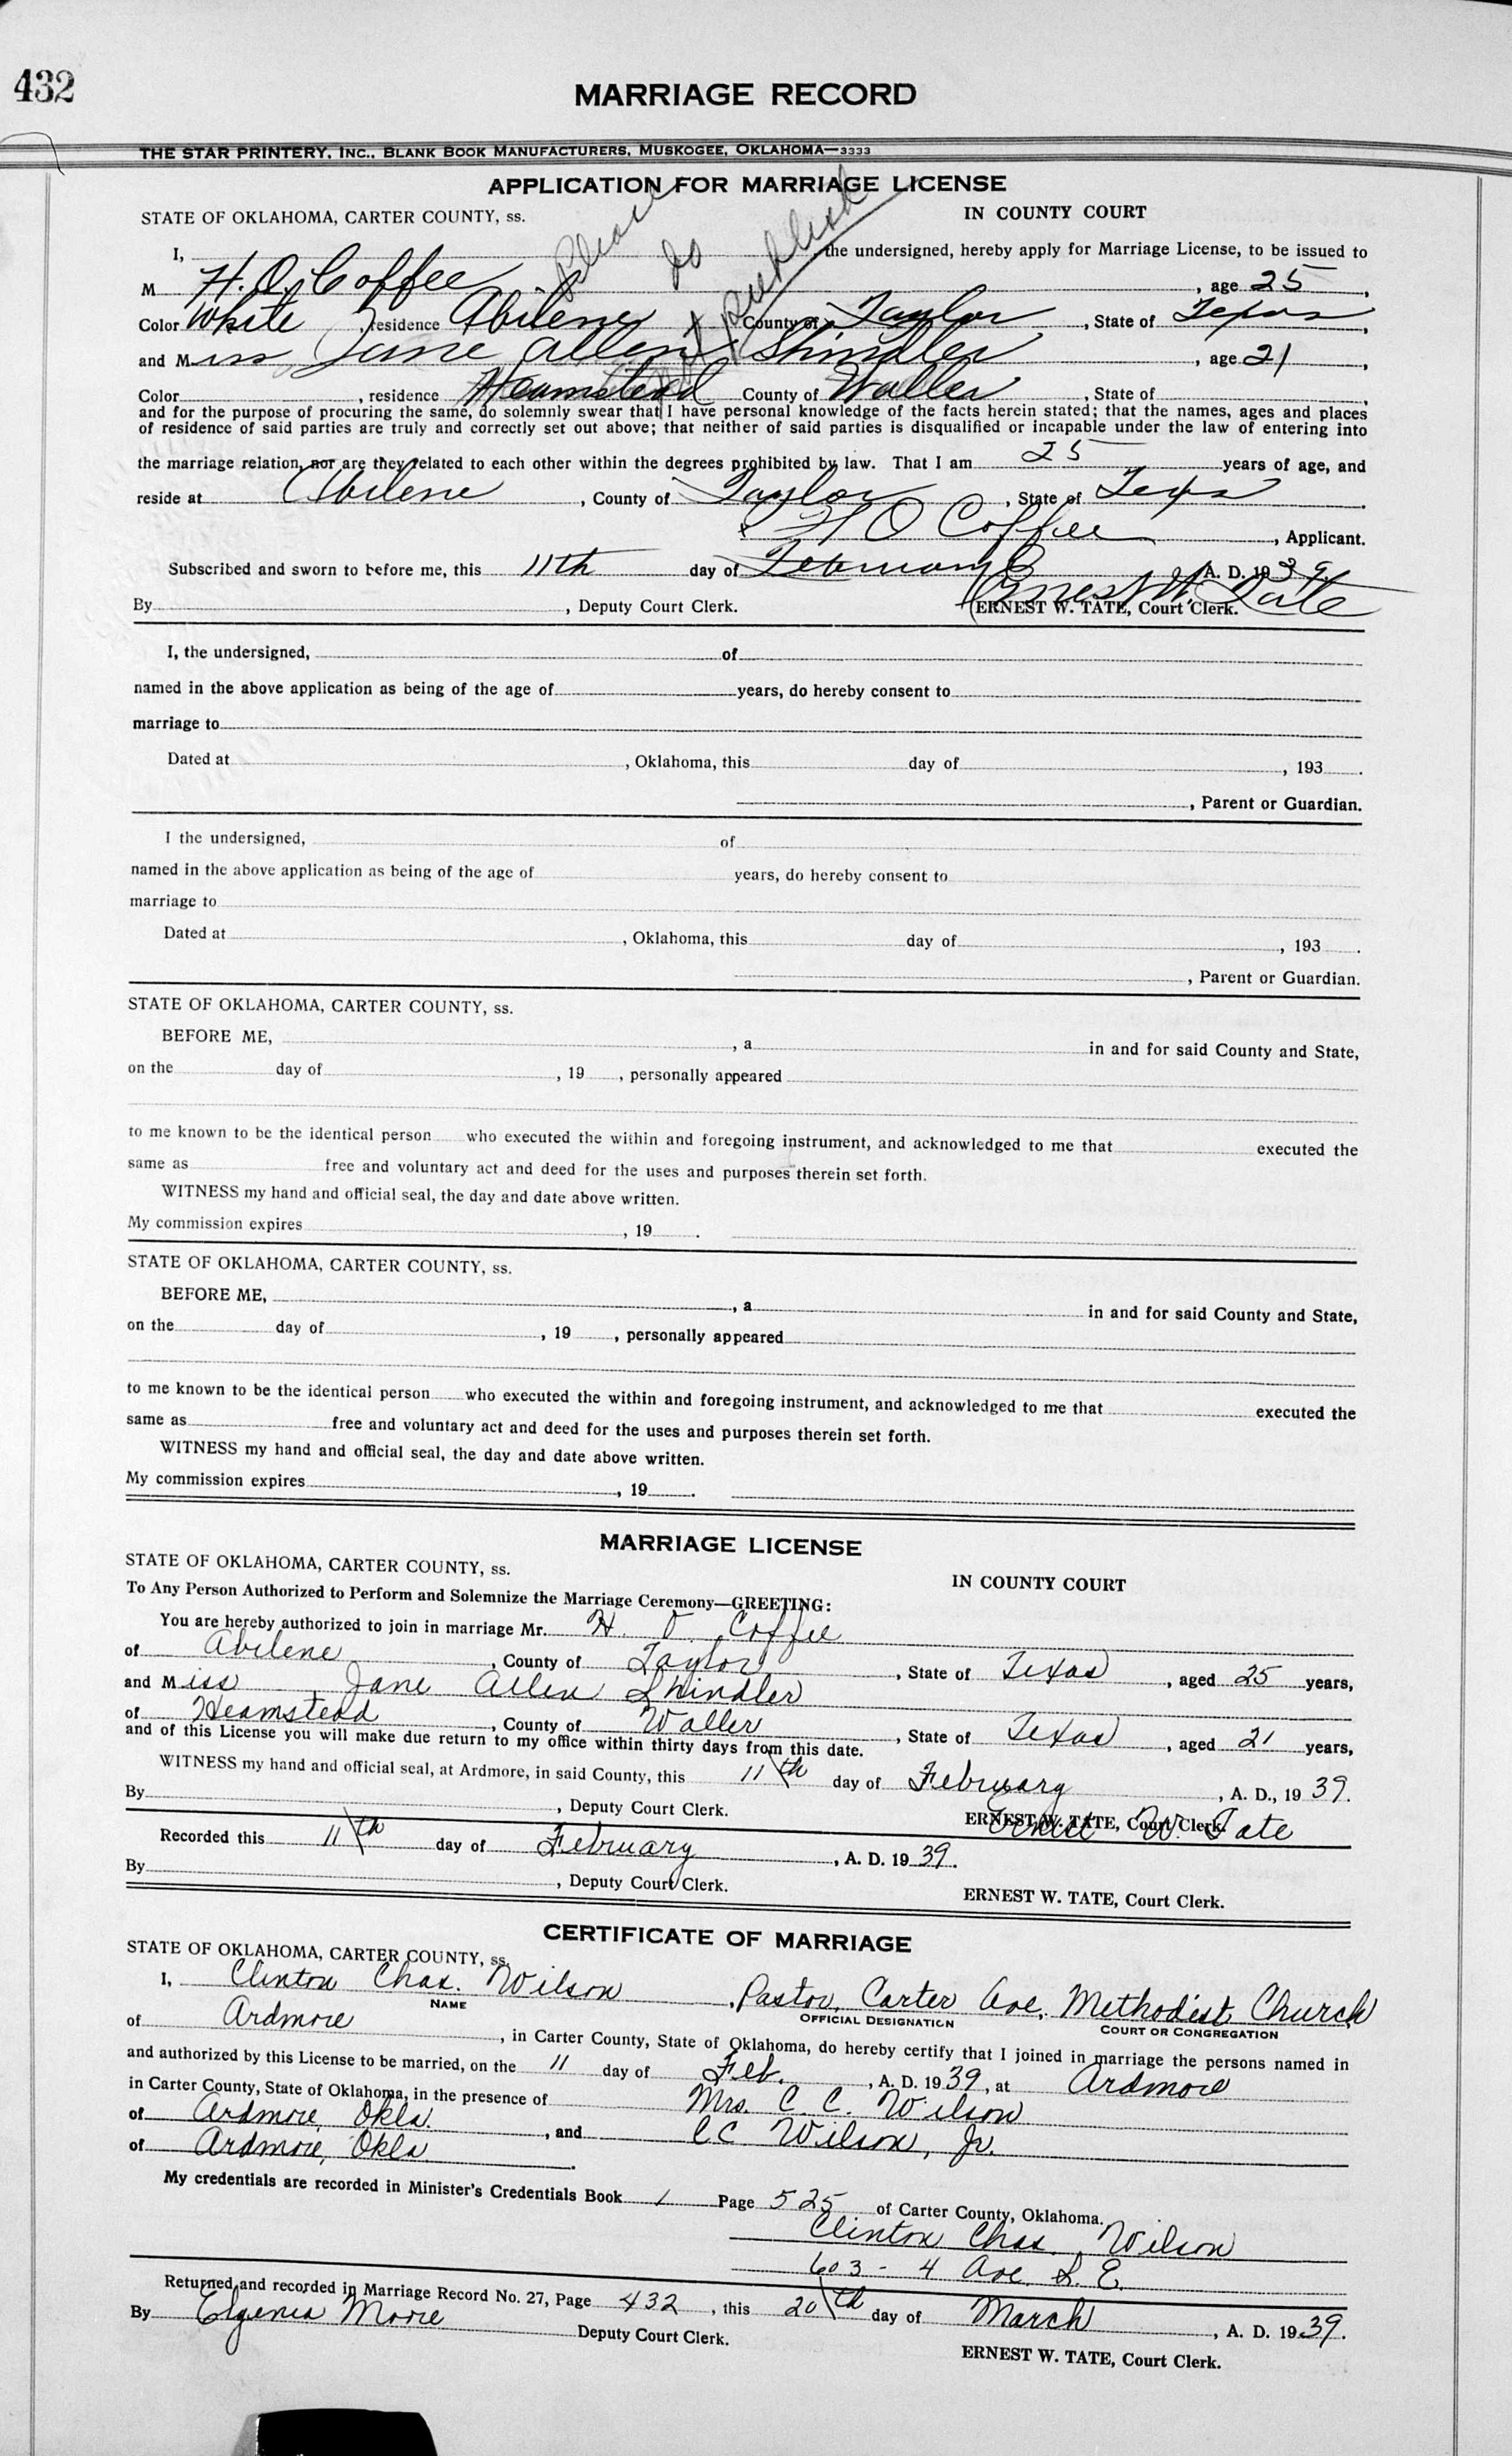 432
MARRIAGE RECORD
THE STAR PRINTERY, INC., BLANK BOOK MANUFACTURERS, MUSKOGEE, OKLAHOMA—3333
APPLICATION FOR MARRIAGE LICENSE
STATE OF OKLAHOMA, CARTER COUNTY, ss. IN COUNTY COURT
Please do not publish
I, , the undersigned, hereby apply for Marriage License, to be issued to
M H. O. Coffee , age 25 ,
Color White , residence Abilene County of Taylor , State of Texas ,
and Miss Jane Allen Shindler , age 21 ,
Color , residence Heamstead County of Waller , State of ,
and for the purpose of procuring the same, do solemnly swear that I have personal knowledge of the facts herein stated; that the names, ages and places
of residence of said parties are truly and correctly set out above; that neither of said parties is disqualified or incapable under the law of entering into
the marriage relation, nor are they related to each other within the degrees prohibited by law. That I am 25 years of age, and
reside at Abilene , County of Taylor , State of Texas .
x H O Coffee , Applicant.
Subscribed and sworn to before me, this 11th day of February A. D. 1939.
Ernest W. Tate
By , Deputy Court Clerk. ERNEST W. TATE, Court Clerk.
I, the undersigned, of
named in the above application as being of the age of years, do hereby consent to
marriage to
Dated at , Oklahoma, this day of , 193 .
, Parent or Guardian.
I the undersigned, of
named in the above application as being of the age of years, do hereby consent to
marriage to
Dated at , Oklahoma, this day of , 193 .
, Parent or Guardian.
STATE OF OKLAHOMA, CARTER COUNTY, ss.
BEFORE ME, , a in and for said County and State,
on the day of , 19 , personally appeared
to me known to be the identical person who executed the within and foregoing instrument, and acknowledged to me that executed the
same as free and voluntary act and deed for the uses and purposes therein set forth.
WITNESS my hand and official seal, the day and date above written.
My commission expires , 19 .
STATE OF OKLAHOMA, CARTER COUNTY, ss.
BEFORE ME, , a in and for said County and State,
on the day of , 19 , personally appeared
to me known to be the identical person who executed the within and foregoing instrument, and acknowledged to me that executed the
same as free and voluntary act and deed for the uses and purposes therein set forth.
WITNESS my hand and official seal, the day and date above written.
My commission expires , 19 .
MARRIAGE LICENSE
STATE OF OKLAHOMA, CARTER COUNTY, ss. IN COUNTY COURT
To Any Person Authorized to Perform and Solemnize the Marriage Ceremony—GREETING:
You are hereby authorized to join in marriage Mr. H. O. Coffee
of Abilene , County of Taylor , State of Texas , aged 25 years,
and Miss Jane Allen Shindler
of Heamstead , County of Waller , State of Texas , aged 21 years,
and of this License you will make due return to my office within thirty days from this date.
WITNESS my hand and official seal, at Ardmore, in said County, this 11th day of February , A. D., 19 39.
By , Deputy Court Clerk. ERNEST W. TATE, Court Clerk.
Ernest W. Tate
Recorded this 11th day of February , A. D. 19 39.
By , Deputy Court Clerk. ERNEST W. TATE, Court Clerk.
CERTIFICATE OF MARRIAGE
STATE OF OKLAHOMA, CARTER COUNTY, ss.
I, Clinton Chas. Wilson , Pastor, Carter Ave. Methodist Church
NAME OFFICIAL DESIGNATION COURT OR CONGREGATION
of Ardmore , in Carter County, State of Oklahoma, do hereby certify that I joined in marriage the persons named in
and authorized by this License to be married, on the 11 day of Feb. , A. D. 19 39, at Ardmore
in Carter County, State of Oklahoma, in the presence of Mrs. C. C. Wilson
of Ardmore, Okla. , and C C Wilson, Jr.
of Ardmore, Okla .
My credentials are recorded in Minister's Credentials Book 1 Page 525 of Carter County, Oklahoma.
Clinton Chas. Wilson
603 - 4 Ave. S. E.
Returned and recorded in Marriage Record No. 27, Page 432 , this 20th day of March , A. D. 19 39.
By Elgenia Moore Deputy Court Clerk. ERNEST W. TATE, Court Clerk.